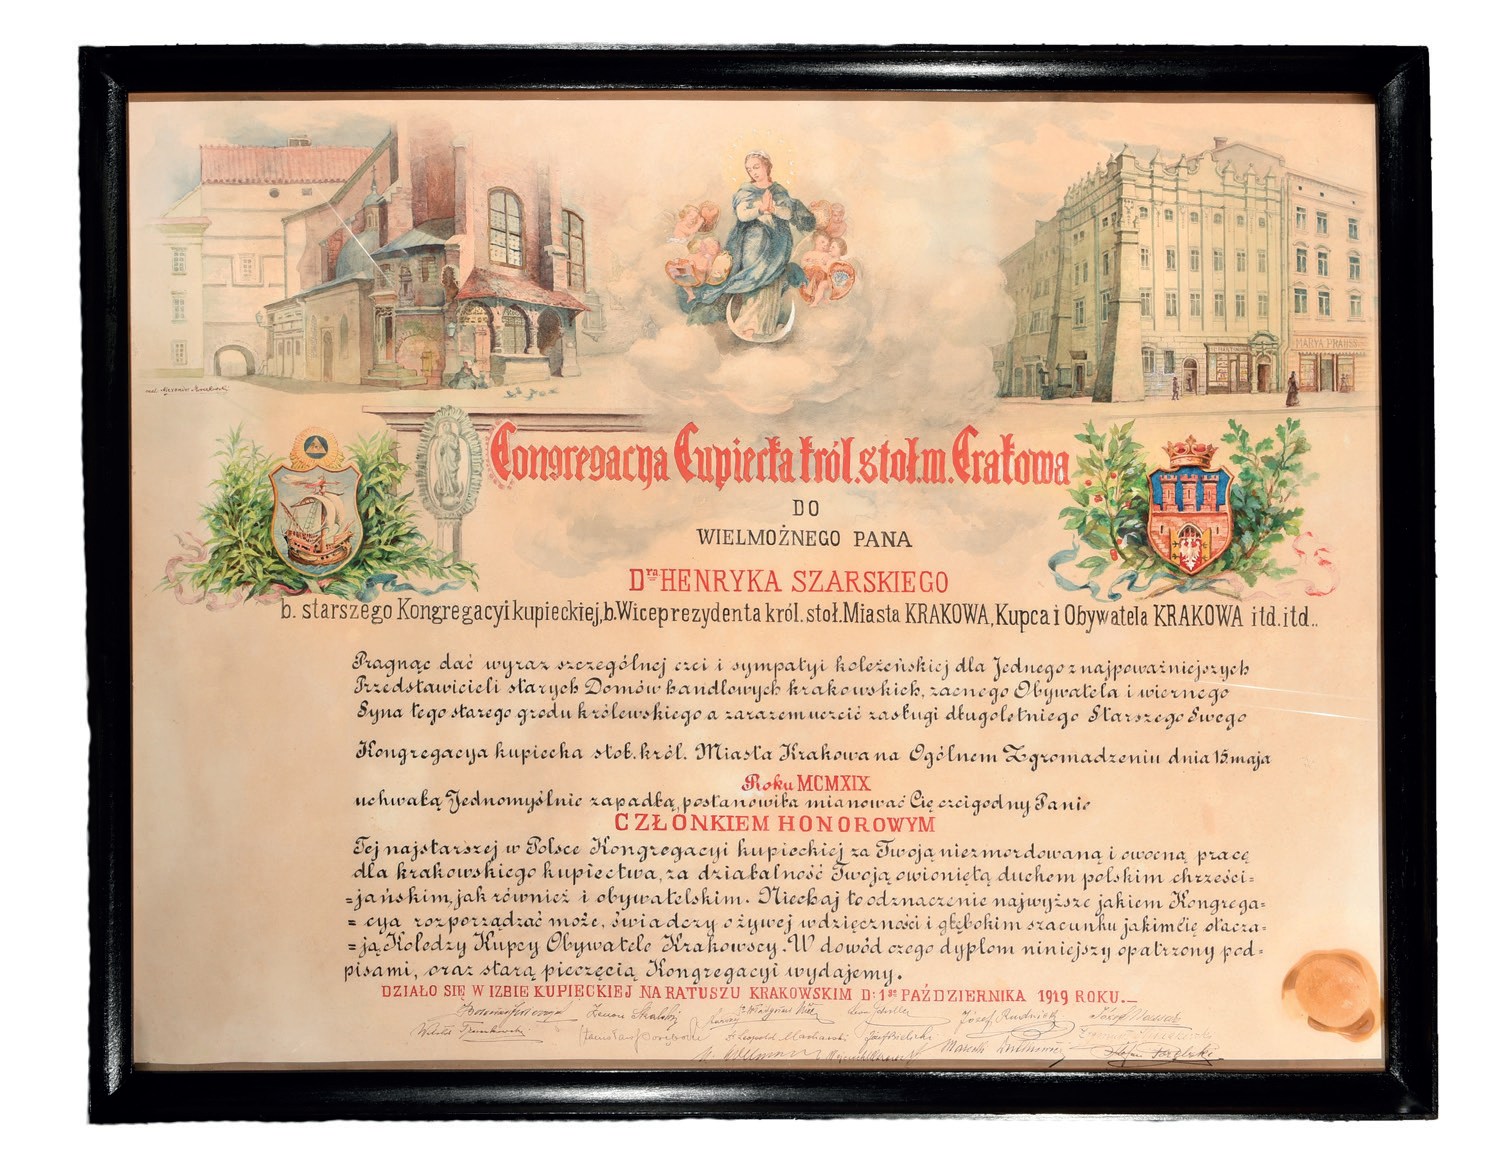 MARYA PRAUSS
Congregacya Cupiecka król. stoł. m. Crakowa
DO
WIELMOŻNEGO PANA
Dra HENRYKA SZARSKIEGO
b. starszego Kongregacyi kupieckiej, b. Wiceprezydenta król. stoł. Miasta KRAKOWA, Kupca i Obywatela KRAKOWA itd. itd..
Pragnąc dać wyraz szczególnej czci i sympatyi koleżeńskiej dla Jednego z najpoważniejszych
Przedstawicieli starych Domów handlowych krakowskich, zacnego Obywatela i wiernego
Syna tego starego grodu królewskiego a zarazem uczcić zasługi długoletniego Starszego Swego
Kongregacya kupiecka stoł. król. Miasta Krakowa na Ogólnem Zgromadzeniu dnia 15 maja
Roku MCMXIX
uchwałą Jednomyślnie zapadłą, postanowiła mianować Cię czcigodny Panie
CZŁONKIEM HONOROWYM
Tej najstarszej w Polsce Kongregacyi kupieckiej za Twoją niezmordowaną i owocną pracę
dla krakowskiego kupiectwa, za działalność Twoją owioniętą duchem polskim chrześci=
=jańskim, jak również i obywatelskim. Niechaj to odznaczenie najwyższe jakiem Kongrega=
=cya rozporządzać może, świadczy o żywej wdzięczności i głębokim szacunku jakim Cię otacza=
=ją Koledzy Kupcy Obywatele Krakowscy. W dowód czego dyplom niniejszy opatrzony pod=
pisami, oraz starą pieczęcią Kongregacyi wydajemy.
DZIAŁO SIĘ W IZBIE KUPIECKIEJ NA RATUSZU KRAKOWSKIM D: 1go PAŹDZIERNIKA 1919 ROKU._
Zenon Skalski Józef Rudnicki
Stanisław Dr Leopold Macharski Józef